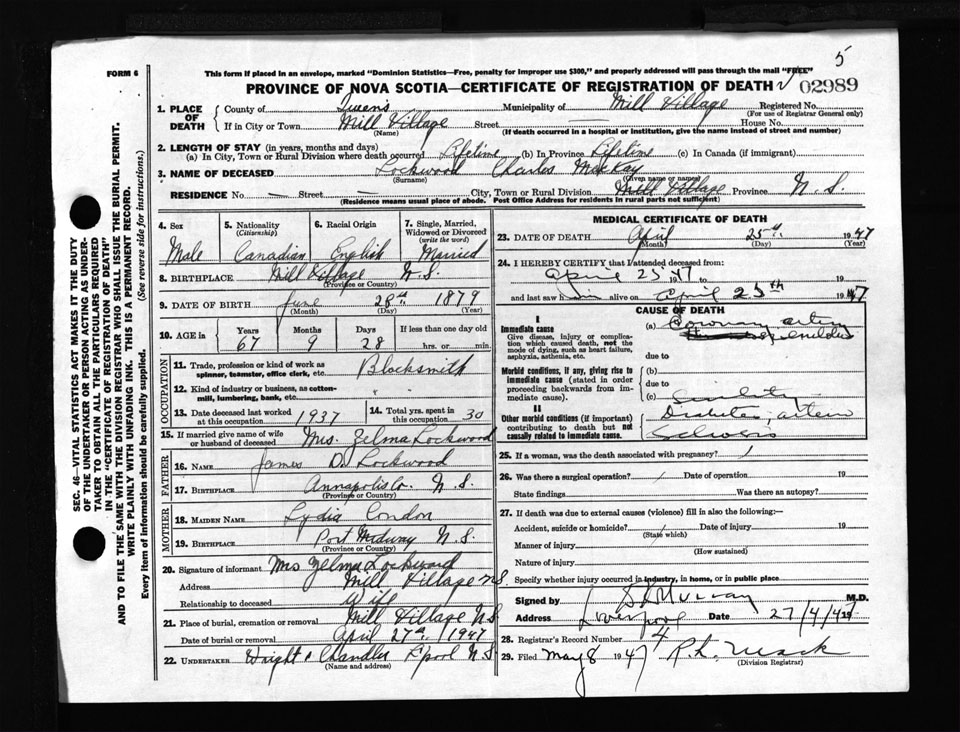 5
FORM 6
This form if placed in an envelope, marked "Dominion Statistics—Free, penalty for improper use $300," and properly addressed will pass through the mail "FREE"
PROVINCE OF NOVA SCOTIA—CERTIFICATE OF REGISTRATION OF DEATH 02989
SEC. 46—VITAL STATISTICS ACT MAKES IT THE DUTY
OF THE UNDERTAKER OR PERSON ACTING AS UNDER-
TAKER TO OBTAIN ALL THE PARTICULARS REQUIRED
IN THE "CERTIFICATE OF REGISTRATION OF DEATH"
AND TO FILE THE SAME WITH THE DIVISION REGISTRAR WHO SHALL ISSUE THE BURIAL PERMIT.
WRITE PLAINLY WITH UNFADING INK. THIS IS A PERMANENT RECORD.
Every item of information should be carefully supplied. (See reverse side for instructions.)
1. PLACE OF DEATH County of Queens Municipality of Mill Village Registered No.
(For use of Registrar General only)
If in City or Town Mill Village Street House No.
(Name) (If death occurred in a hospital or institution, give the name instead of street and number)
2. LENGTH OF STAY (in years, months and days)
(a) In City, Town or Rural Division where death occurred Lifetime (b) In Province Lifetime (c) In Canada (if immigrant)
3. NAME OF DECEASED Lockwood Charles MacKay
(Surname) (Given name or names)
RESIDENCE No. — Street — City, Town or Rural Division Mill Village Province N.S.
(Residence means usual place of abode. Post Office Address for residents in rural parts not sufficient)
4. Sex Male
5. Nationality (Citizenship) Canadian
6. Racial Origin English
7. Single, Married, Widowed or Divorced (write the word) Married
8. BIRTHPLACE Mill Village N.S.
(Province or Country)
9. DATE OF BIRTH June 28th 1879
(Month) (Day) (Year)
10. AGE Years 67 Months 9 Days 28 If less than one day old hrs. or min.
OCCUPATION
11. Trade, profession or kind of work as spinner, teamster, office clerk, etc. Blacksmith
12. Kind of industry or business, as cotton-mill, lumbering, bank, etc. "
13. Date deceased last worked at this occupation 1937
14. Total yrs. spent in this occupation 30
15. If married give name of wife or husband of deceased Mrs. Zelma Lockwood
FATHER
16. NAME James D. Lockwood
17. BIRTHPLACE Annapolis Co. N.S.
(Province or Country)
MOTHER
18. MAIDEN NAME Lydia Condon
19. BIRTHPLACE Port Medway N.S.
(Province or Country)
20. Signature of informant Mrs Zelma Lockwood
Address Mill Village N.S.
Relationship to deceased Wife
21. Place of burial, cremation or removal Mill Village N.S.
Date of burial or removal April 27th 1947
22. UNDERTAKER Wright & Chandler L'pool N.S.
(Name and address)
MEDICAL CERTIFICATE OF DEATH
23. DATE OF DEATH April 25th 1947
(Month) (Day) (Year)
24. I HEREBY CERTIFY that I attended deceased from:
April 25 1947 to 19
and last saw him alive on April 25th 1947
CAUSE OF DEATH
I
Immediate cause
Give disease, injury or complication which caused death, not the mode of dying, such as heart failure, asphyxia, asthenia, etc.
(a) Coronary artery
due to
Morbid conditions, if any, giving rise to immediate cause (stated in order proceeding backwards from immediate cause).
(b)
due to
(c) Senility
II
Other morbid conditions (if important) contributing to death but not causally related to immediate cause.
Diabetes, arterio
Sclerosis
25. If a woman, was the death associated with pregnancy? /
26. Was there a surgical operation? / Date of operation 19
State findings Was there an autopsy?
27. If death was due to external causes (violence) fill in also the following:—
Accident, suicide or homicide? / Date of injury 19
(State which)
Manner of injury
(How sustained)
Nature of injury
Specify whether injury occurred in industry, in home, or in public place
Signed by Murray M.D.
Address Liverpool Date 27/4/47
28. Registrar's Record Number 4
29. Filed May 8 1947 R. L. Mack
(Division Registrar)